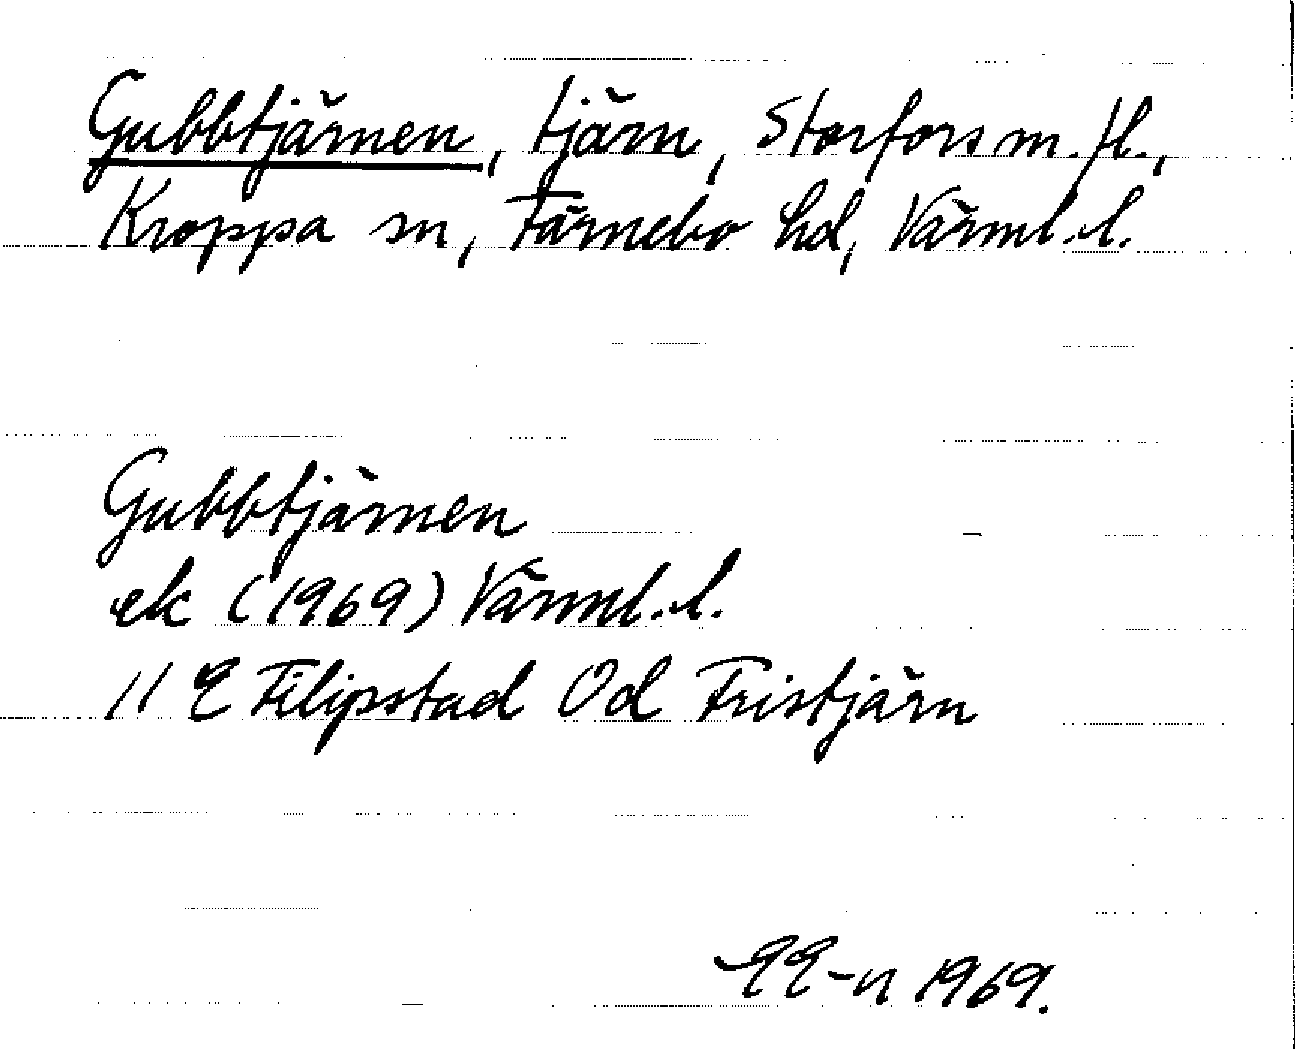 Gubbtjärnen, tjärn, Storfors m. fl.,
Kroppa sn, Färnebo hd, Värml. l.
Gubbtjärnen
ek (1969) Värml. l.
11 E Filipstad Od Fristjärn
1969.